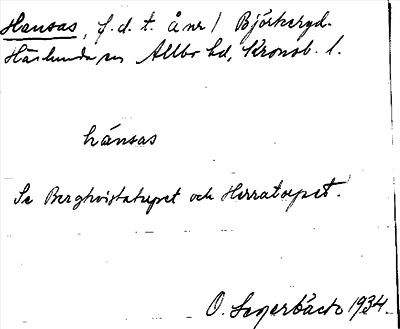 Hansas, f.d. t. å nr 1 Björkeryd.
Härlunda sn Allbo hd, Kronob. l.
hánsas
Se Bergkvistatorpet och Herratorpet.
O. Segerbäck 1934.